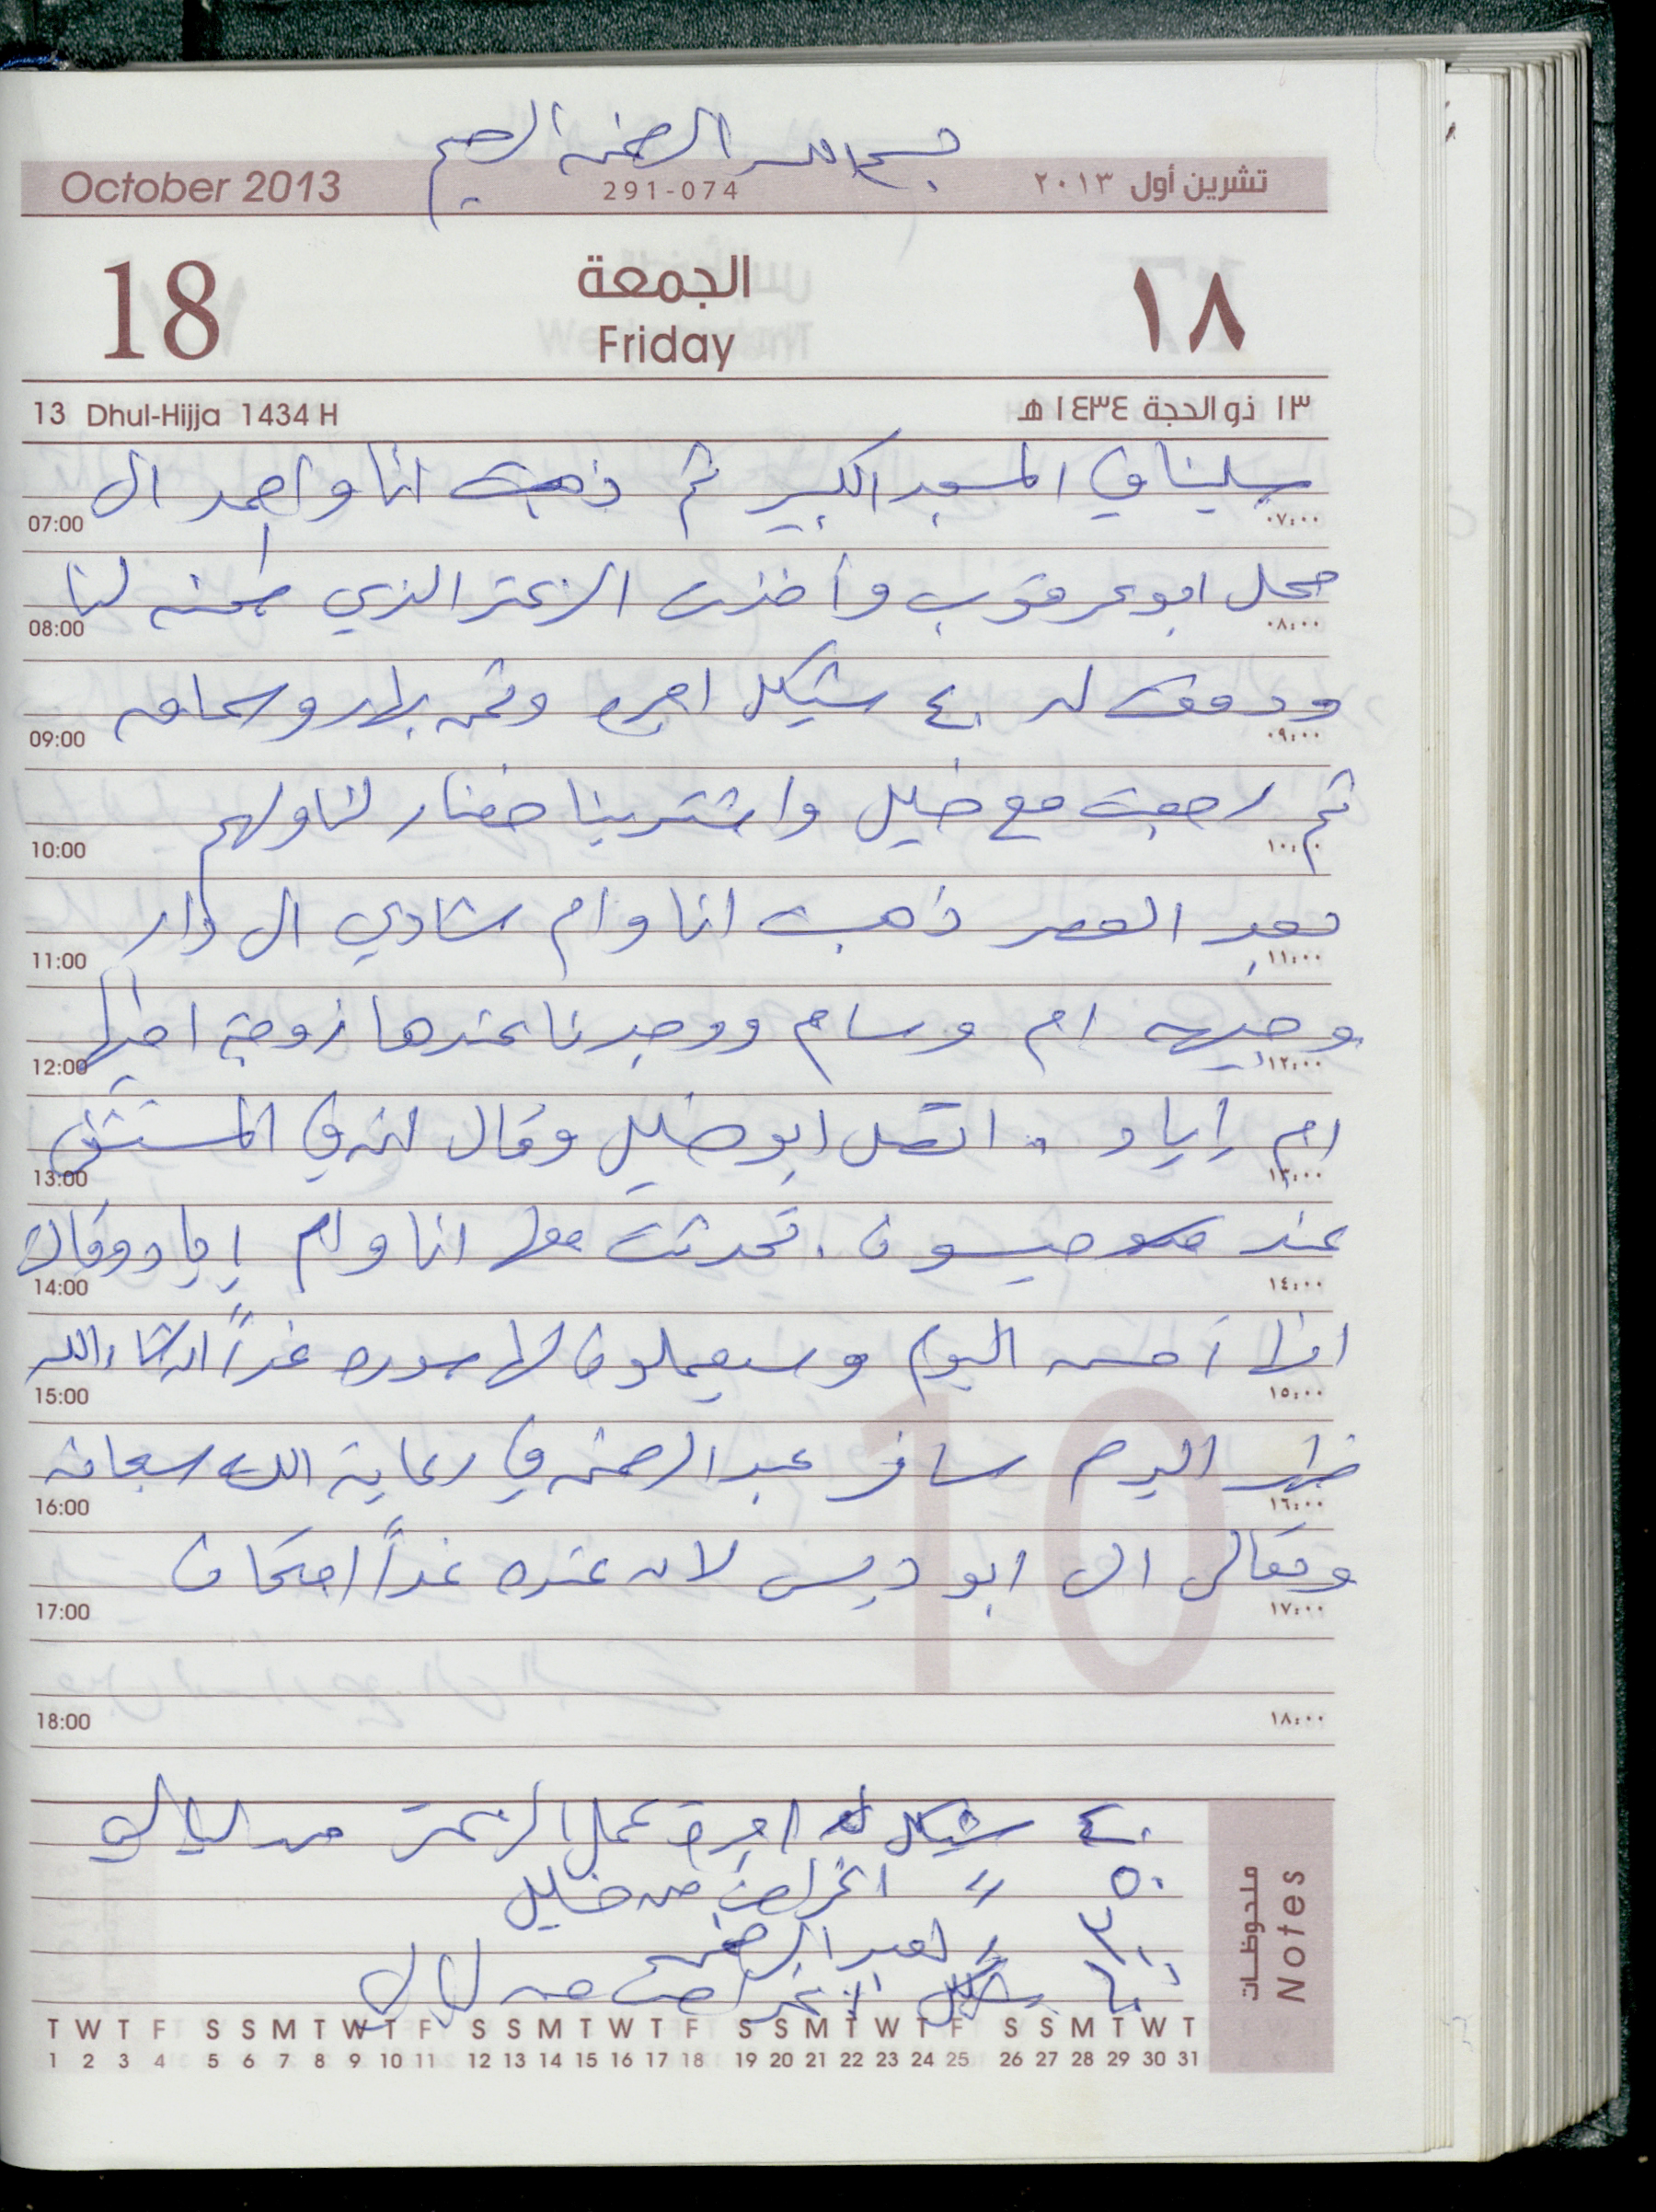 بسم الله الرحمن الرحيم
October 2013 291-074 تشرين أول ٢٠١٣
18 الجمعة ١٨
Friday
13 Dhul-Hijja 1434 H ١٣ ذو الحجة ١٤٣٤ هـ
صلينا في المسجد الكبير ثم ذهبت انا واحمد الى
07:00 ٠٧:٠٠
محل ابو عرقوب وأخذت الزعتر الذي طحنه لنا
08:00 ٠٨:٠٠
ودفعت له ٤٠ شيكل اجره وثمن بهار وسماقه
09:00 ٠٩:٠٠
ثم رجعت مع خليل واشترينا خضار لنا ولهم
10:00 ١٠:٠٠
بعد العصر ذهبت انا وام شادي الى دار
11:00 ١١:٠٠
وجيهه ام وسام ووجدنا عندها زوجة اخيها
12:00 ١٢:٠٠
ام إياد . اتصل ابو خليل وقال انه في المستشفى
13:00 ١٣:٠٠
عند ميسون . تحدثت معها انا وام إياد وقالت
14:00 ١٤:٠٠
انها أحسن اليوم وسيعملون لها صوره غداً ان شاء الله
15:00 ١٥:٠٠
ظهر اليوم سافر عبد الرحمن في رعاية الله سبحانه
16:00 ١٦:٠٠
وتعالى الى ابو ديس لان عنده غداً امتحان
17:00 ١٧:٠٠
18:00 ١٨:٠٠
10
٤٠ شيكل اجرة عمل الزعتر من
٥٠ " اغراض من خليل
" لعبد الرحمن
شيكل اغراض من
ملحوظات Notes
T W T F S S M T W T F S S M T W T F S S M T W T F S S M T W T
1 2 3 4 5 6 7 8 9 10 11 12 13 14 15 16 17 18 19 20 21 22 23 24 25 26 27 28 29 30 31